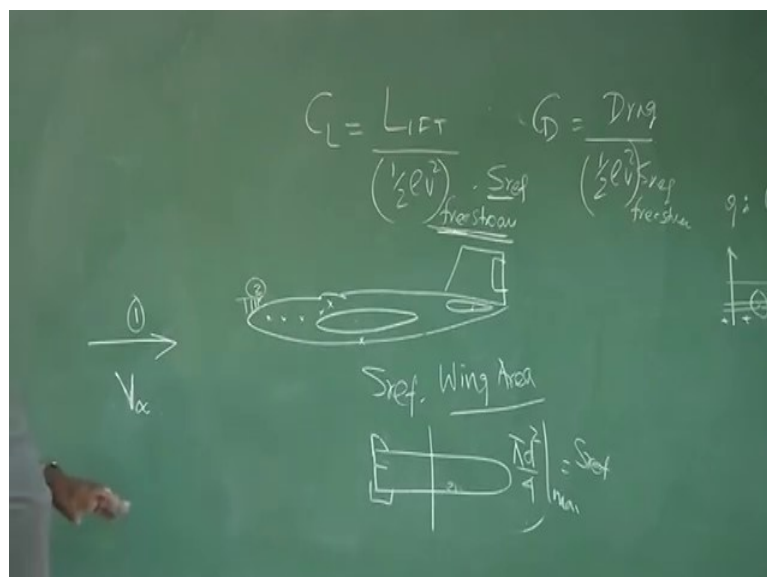 C_L = LIFT / (1/2 ρv²)freestream · Sref
C_D = Drag / (1/2 ρv²)freestream Sref
q:
②
①
V∝
Sref. Wing Area
πd²/4 |max = Sref